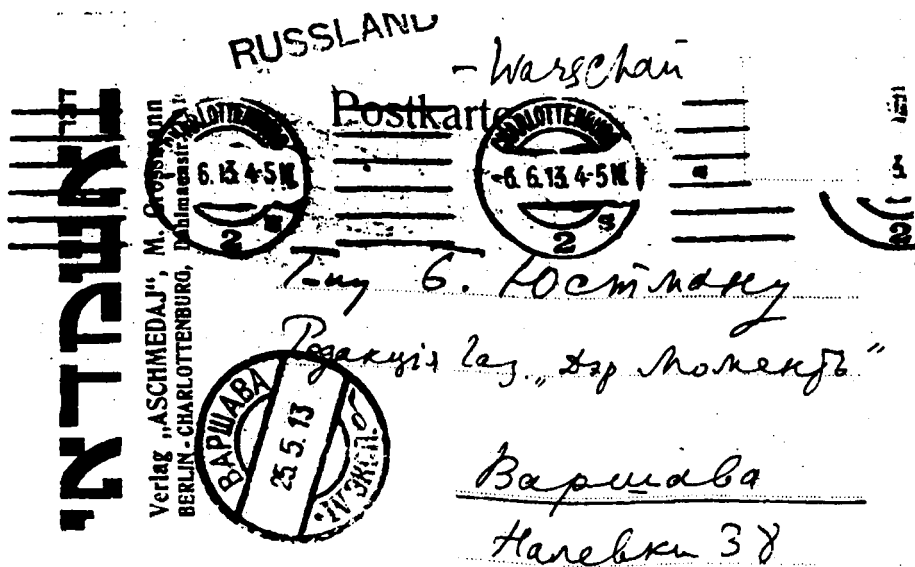 RUSSLAND
- Warschau
Postkarte
CHARLOTTENBURG
6.13. 4-5 N
2
CHARLOTTENBURG
-6.6.13. 4-5 N
2 s
אשמדאי
Verlag „ASCHMEDAJ“, M. Grossmann
BERLIN - CHARLOTTENBURG, Dahlmannstr.
Г-ну Б. Юстману
Редакція Газ. „Дэр Моментъ“
ВАРШАВА
25.5.13
Варшава
Налевки 38